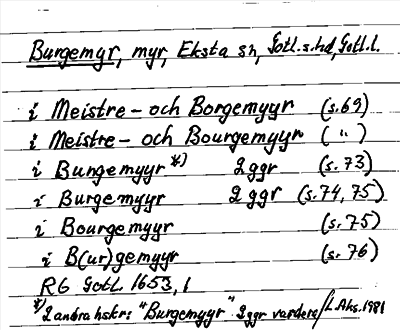 Burgemyr, myr, Eksta sn, Gotl.s.hd, Gotl.l.
i Meistre- och Borgemyyr (s.69)
i Meistre- och Bourgemyyr ( " )
i Bungemyyr *) 2 ggr (s.73)
i Burgemyyr 2 ggr (s.74, 75)
i Bourgemyyr (s.75)
i B(ur)gemyyr (s.76)
RG Gotl. 1653, 1
*) 2 andra hskr: "Burgemyyr" 2 ggr vardera / L Ahs. 1981